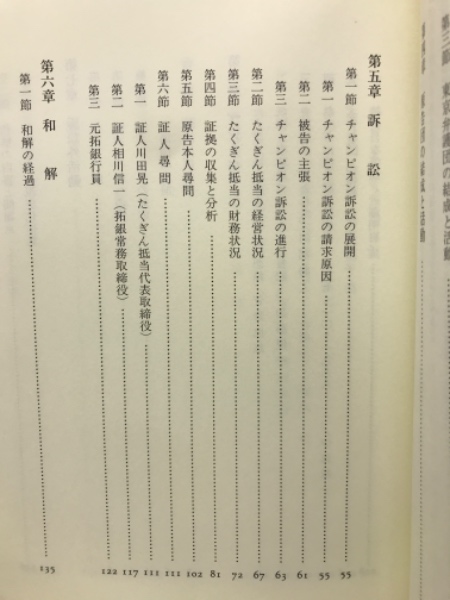 第五章 訴訟
第一節 チャンピオン訴訟の展開 55
第一 チャンピオン訴訟の請求原因 55
第二 被告の主張 61
第三 チャンピオン訴訟の進行 63
第二節 たくぎん抵当の経営状況 67
第三節 たくぎん抵当の財務状況 72
第四節 証拠の収集と分析 81
第五節 原告本人尋問 102
第六節 証人尋問 111
第一 証人川田晃(たくぎん抵当代表取締役) 111
第二 証人相川信一(拓銀常務取締役) 117
第三 元拓銀行員 122
第六章 和解
第一節 和解の経過 135